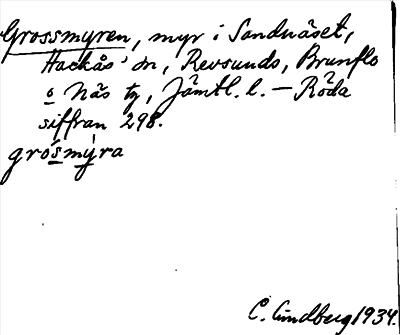 Grossmyren, myr i Sandnäset,
Hackås' sn, Revsunds, Brunflo
o Näs tg, Jämtl. l. — Röda
siffran 298.
grósmýra
C. Lindberg 1934.